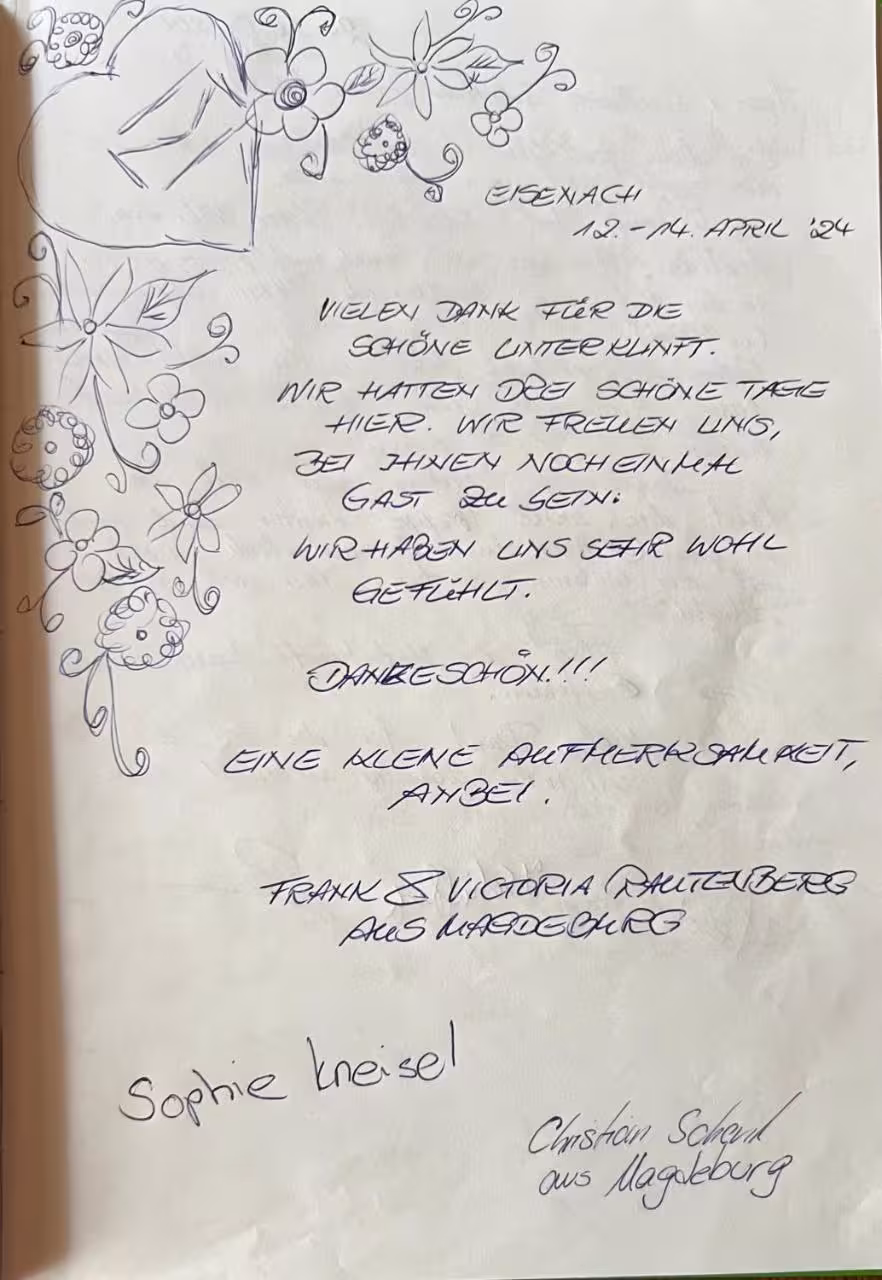 EISENACH
12.-14. APRIL '24
VIELEN DANK FÜR DIE
SCHÖNE UNTERKUNFT.
WIR HATTEN DREI SCHÖNE TAGE
HIER. WIR FREUEN UNS,
BEI IHNEN NOCH EINMAL
GAST ZU SEIN.
WIR HABEN UNS SEHR WOHL
GEFÜHLT.
DANKESCHÖN.!!!
EINE KLENE AUFMERKSAMKEIT,
ANBEI.
FRANK & VICTORIA RAUTENBERG
AUS MAGDEBURG
Sophie Kneisel
Christian Schenk
aus Magdeburg